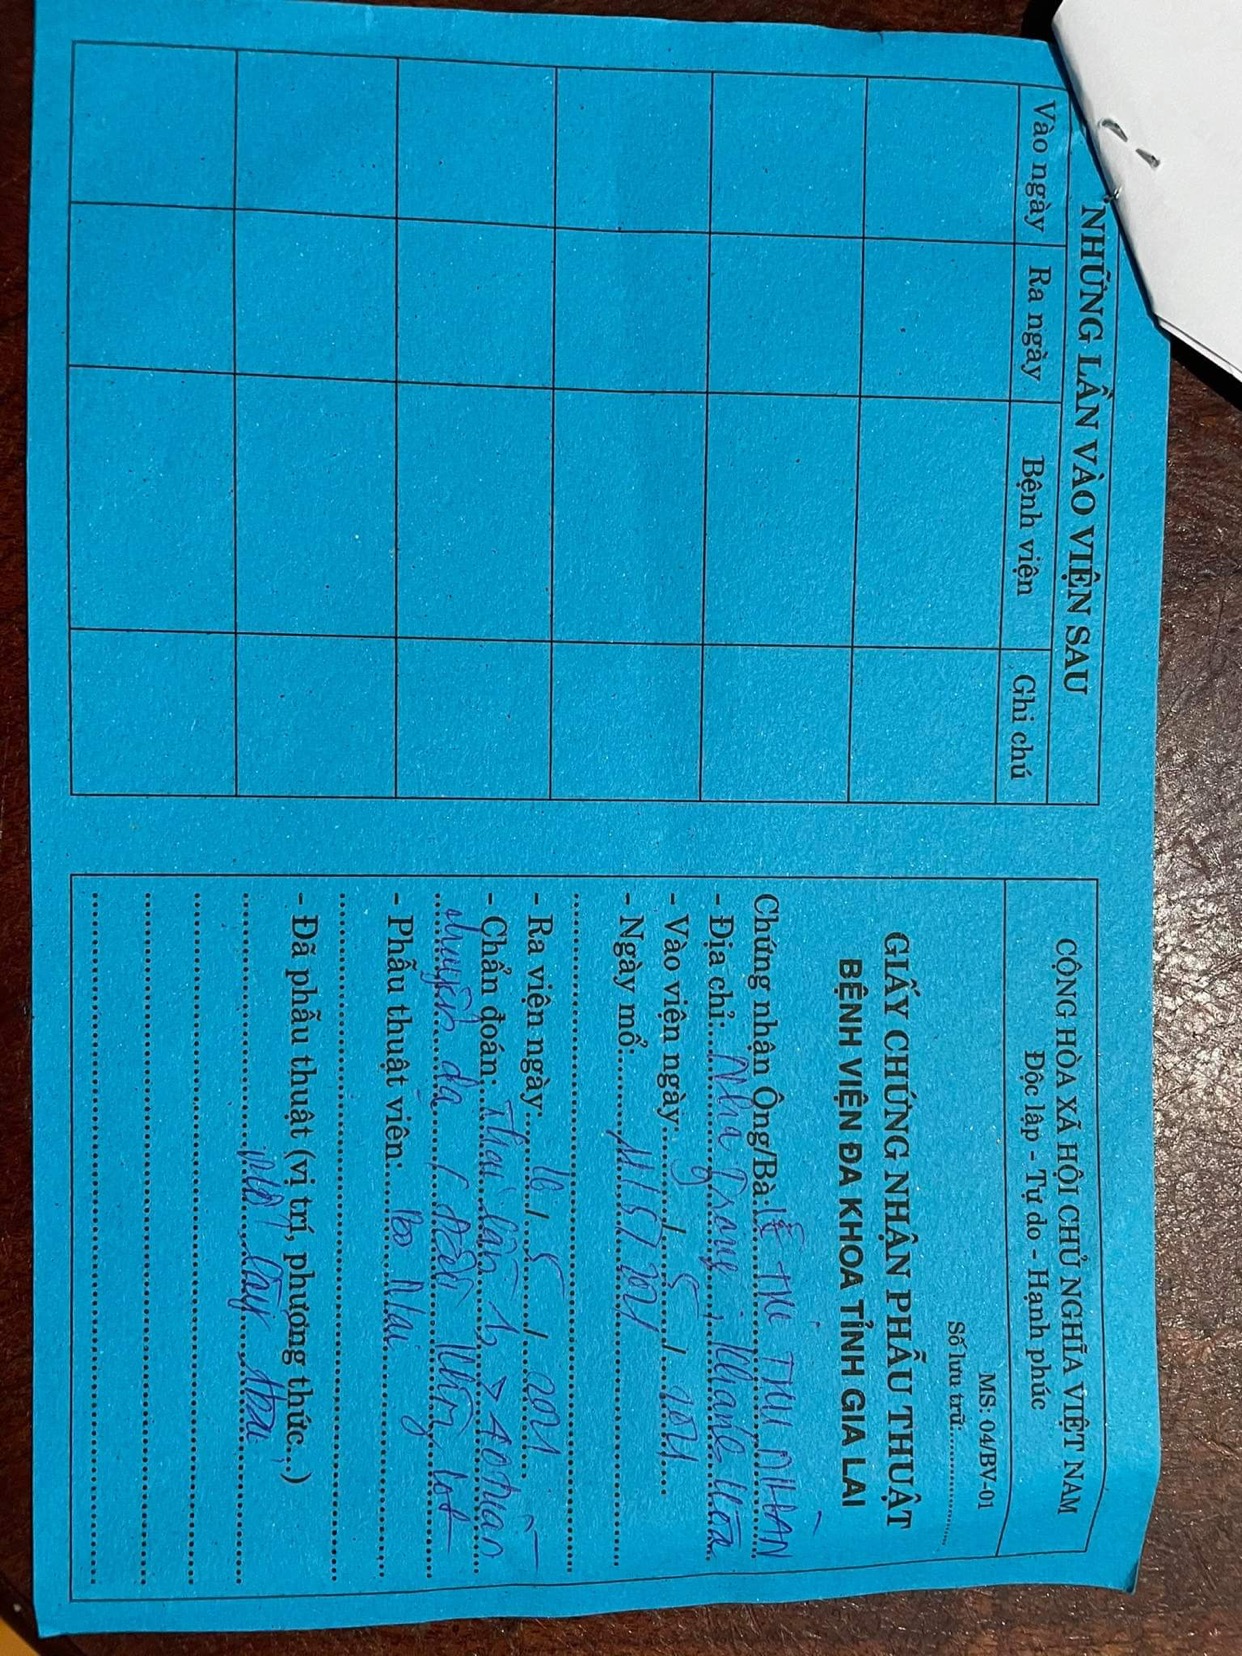 NHỮNG LẦN VÀO VIỆN SAU
Vào ngày Ra ngày Bệnh viện Ghi chú
CỘNG HÒA XÃ HỘI CHỦ NGHĨA VIỆT NAM
Độc lập - Tự do - Hạnh phúc
MS: 04/BV-01
Số lưu trữ:
GIẤY CHỨNG NHẬN PHẪU THUẬT
BỆNH VIỆN ĐA KHOA TỈNH GIA LAI
Chứng nhận Ông/Bà LÊ THỊ THU NHÀN
- Địa chỉ: Nha Trang, Khánh Hòa
- Vào viện ngày 9 / 5 / 2021
- Ngày mổ: 11/5/2021
- Ra viện ngày: 16 / 5 / 2021
- Chẩn đoán: Thai lần 1, > 40 tuần
chuyển dạ / đầu không lọt
- Phẫu thuật viên: Mai
- Đã phẫu thuật (vị trí, phương thức...)
Mổ lấy thai